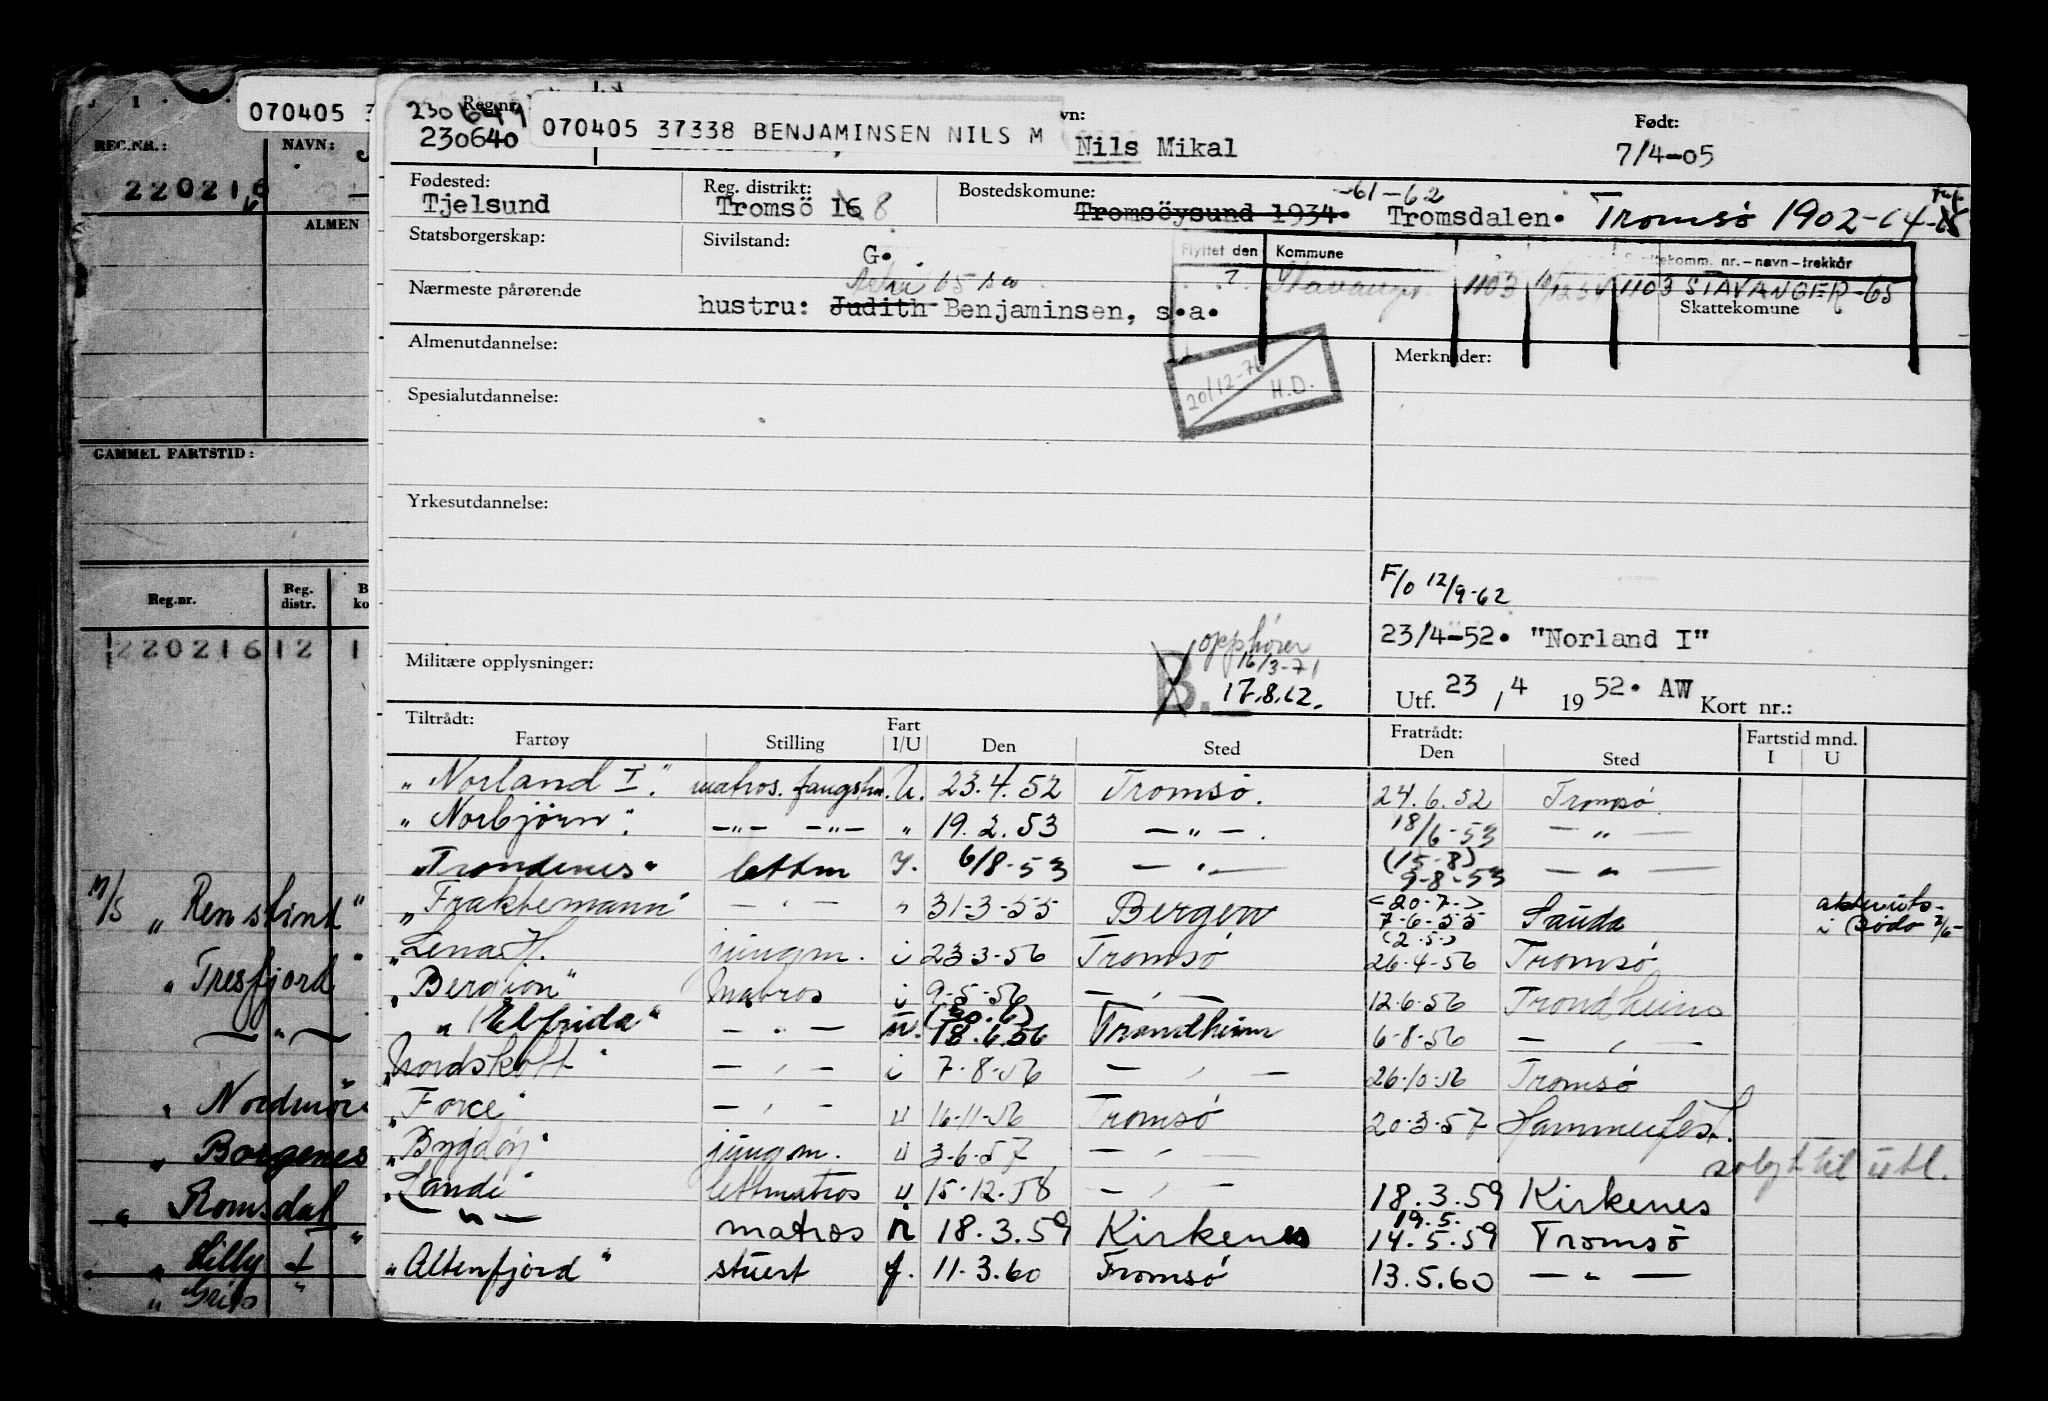 070405 3
REG.NR.:
NAVN:
220216
ALMEN
GAMMEL FARTSTID:
Reg.nr.
Reg. distr.
220216 12 1
M/S " Renstind "
" Tresfjord "
— " —
" Nordmör
" Borgenes
" Romsdal
" Lilly "
" Grips "
Reg.nr.
230640
070405 37338 BENJAMINSEN NILS M
vn:
Nils Mikal
Født:
7/4-05
Fødested:
Tjelsund
Reg. distrikt:
Tromsö 16 8
Bostedskomune:
-61-62
Tromsöysund 1934. Tromsdalen. Tromsø 1902-64-
Statsborgerskap:
Sivilstand:
G.
Flyttet den
Kommune
komm. nr.-navn-trekkår
? Stavanger 1103
1103 STAVANGER-65
Skattekomune
Nærmeste pårørende
65
hustru: Judith Benjaminsen, s.a.
Almenutdannelse:
Merknader:
20/12-76 H.D.
Spesialutdannelse:
Yrkesutdannelse:
F/o 12/9-62
23/4-52. "Norland I"
Militære opplysninger:
opphører
16/3-71
B. 17.8.62.
Utf. 23 / 4 19 52. AW Kort nr.:
Tiltrådt:
Fartøy Stilling Fart I/U Den Sted
Fratrådt:
Den Sted
Fartstid mnd.
I U
"Norland I." matros. fangstm. U. 23.4.52 Tromsø. 24.6.52 Tromsø
"Norbjørn". —"— —"— " 19.2.53 — " —. 18/6-53 — " —
"Trondenes" lettm 6/8-53 — " — (15-8) 9-8-53 — " —
"Fraktemann" — " — " 31-3-55 Bergen (20-7-) 7-6-55 Sauda
i Bodø
"Lena H. jungm. i 23-3-56 Tromsø (2.5.) 26-4-56 Tromsø
" matros i 9-5-56 — " — 12-6-56 Trondheim
"Elfrida" — " — (20.6) 18.6.56 Trondheim 6-8-56 — " —
"Nordskott" — " — i 7-8-56 — " — 26-10-56 Tromsø
"Force" — " — u 16-11-56 Tromsø 20-3-57 Hammerfest.
"Bygdøy" jungm. u 3-6-57 — " — solgt til utl.
"Landi" lettmatros u 15-12-58 — " — 18.3.59 Kirkenes
— " — matros 18.3.59 Kirkenes 19.5. 14.5.59 Tromsö
"Altenfjord" stuert f. 11.3.60 Tromsö 13.5.60 — " —